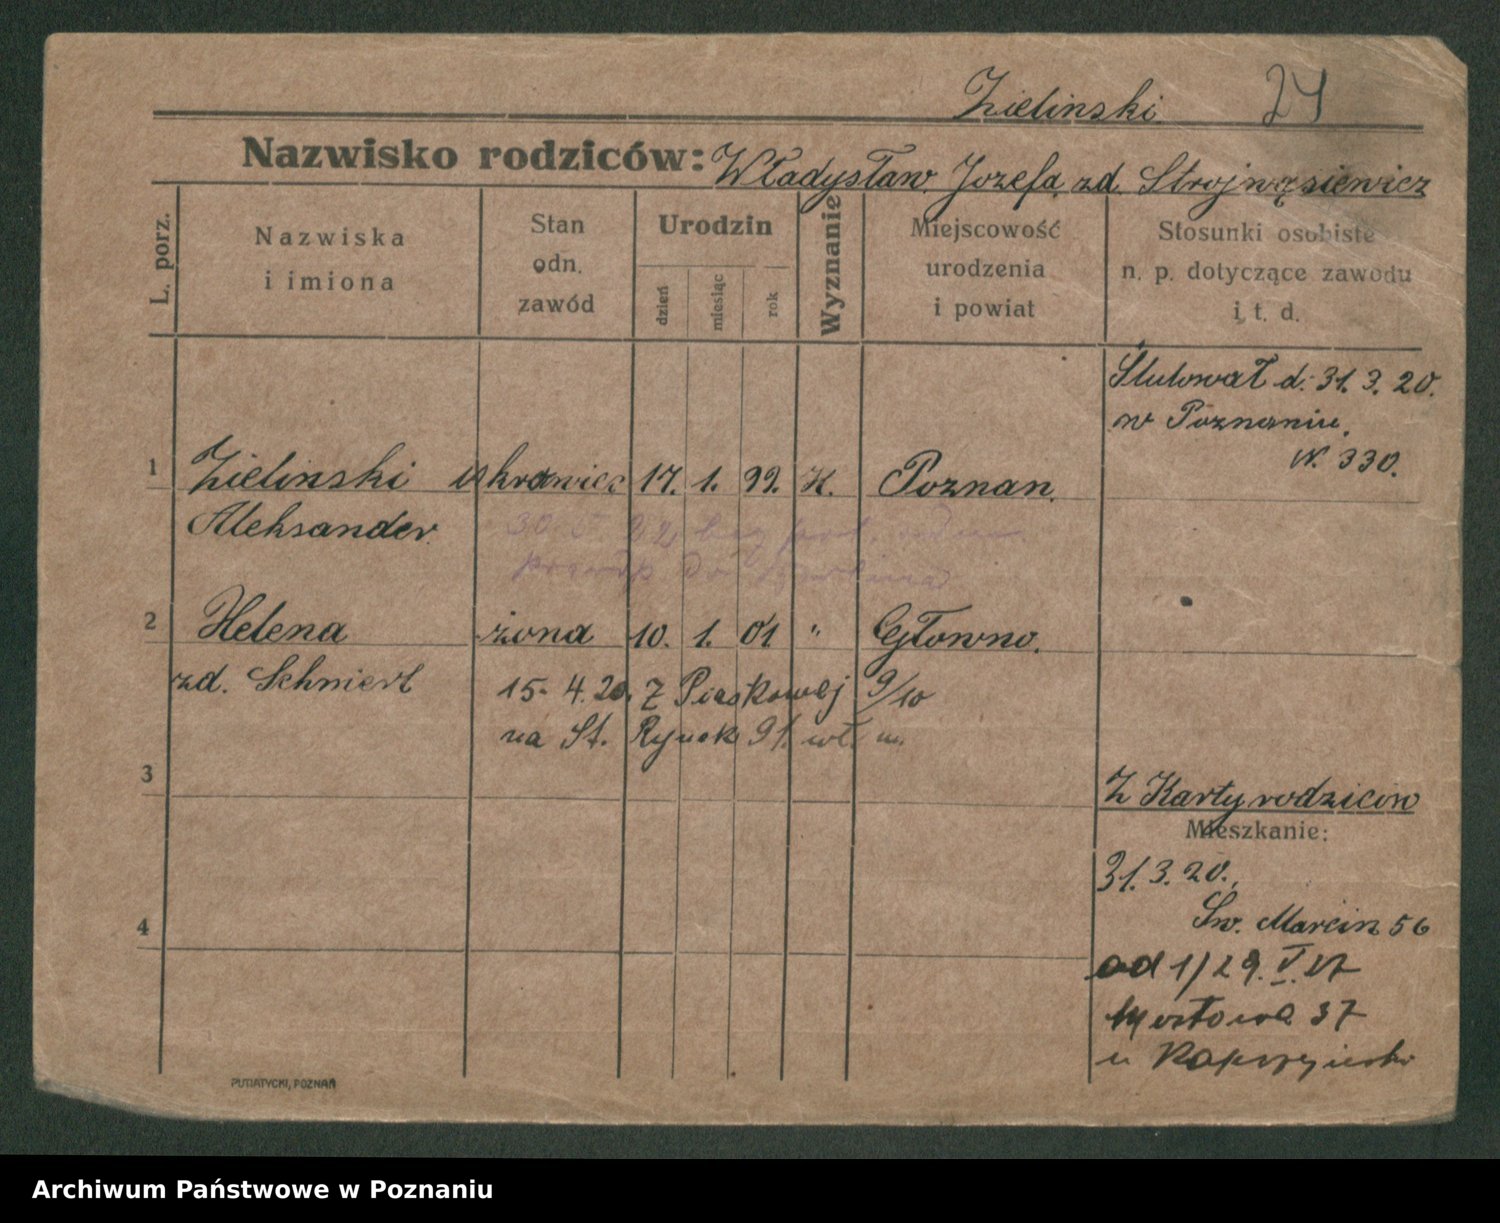 Zielinski 24
Nazwisko rodziców: Władysław Jozefa zd. Strojwąsiewicz
L. porz.
Nazwiska i imiona
Stan odn. zawód
Urodzin
dzień miesiąc rok
Wyznanie
Miejscowość urodzenia i powiat
Stosunki osobiste n. p. dotyczące zawodu i t. d.
Slubował d. 31. 3. 20.
w Poznaniu.
N. 330.
1 Zielinski krawiec 17. 1. 99. K. Poznan.
Aleksander
30 5 22 bez
do
2 Helena żona 10. 1. 01 " Głowno.
zd. Schniert 15. 4. 20. Z Piaskowej 9/10
na St. Rynek 91 wł. m.
3
Z Karty rodziców
Mieszkanie:
31. 3. 20.,
Sw. Marcin 56
4
od 1/29. V. 17
37
u
PUTIATYCKI, POZNAŃ
Archiwum Państwowe w Poznaniu